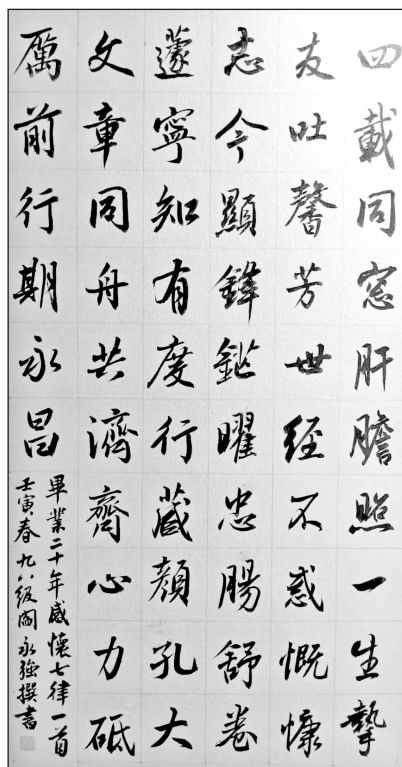 四載同窓肝膽照一生摯
友吐馨芳世經不惑慨慷
志今顯鋒鋩曜忠腸舒卷
蘧寧知有度行藏顏孔大
文章同舟共濟齊心力砥
厲前行期永昌
畢業二十年感懷七律一首
壬寅春九八級閻永強撰書